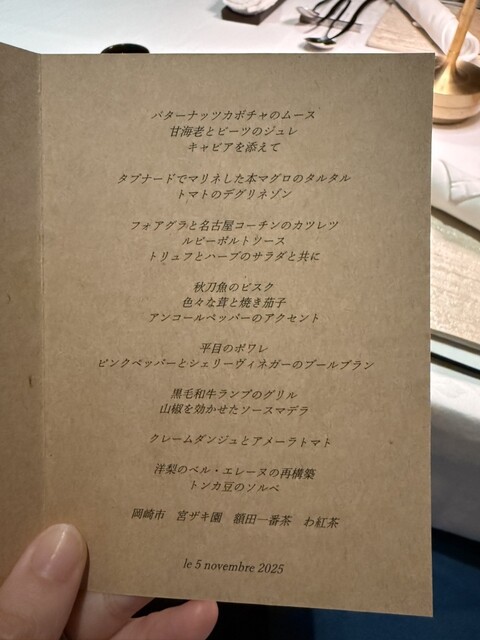 バターナッツカボチャのムース
甘海老とビーツのジュレ
キャビアを添えて
タプナードでマリネした本マグロのタルタル
トマトのデグリネゾン
フォアグラと名古屋コーチンのカツレツ
ルビーポルトソース
トリュフとハーブのサラダと共に
秋刀魚のビスク
色々な茸と焼き茄子
アンコールペッパーのアクセント
平目のポワレ
ピンクペッパーとシェリーヴィネガーのブールブラン
黒毛和牛ランプのグリル
山椒を効かせたソースマデラ
クレームダンジュとアメーラトマト
洋梨のベル・エレーヌの再構築
トンカ豆のソルベ
岡崎市 宮ザキ園 額田一番茶 わ紅茶
le 5 novembre 2025